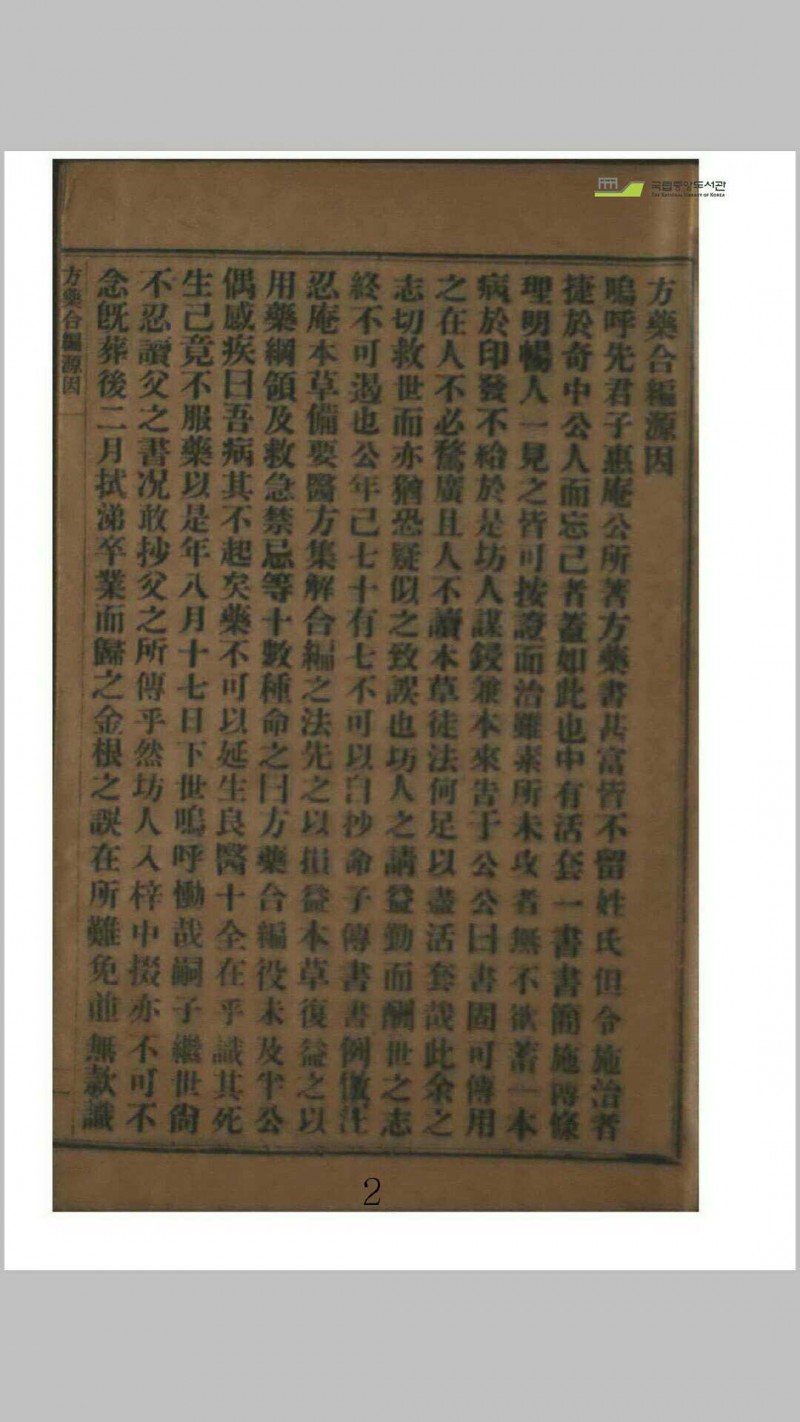 국립중앙도서관
THE NATIONAL LIBRARY OF KOREA
方藥合編源因
嗚呼先君子惠庵公所著方藥書甚富皆不留姓氏但令施治者
捷於奇中公人而忘己者蓋如此也中有活套一書書簡施博條
理明暢人一見之皆可按證而治雖素所未攻者無不欲蓄一本
病於印發不給於是坊人謀鋟兼本來告于公公曰書固可傳用
之在人不必騖廣且人不讀本草徒法何足以盡活套哉此余之
志切救世而亦猶恐疑似之致誤也坊人之請益勤而酬世之志
終不可遏也公年己七十有七不可以自抄命子傳書書例倣汪
忍庵本草備要醫方集解合編之法先之以損益本草復益之以
用藥綱領及救急禁忌等十數種命之曰方藥合編役未及半公
偶感疾曰吾病其不起矣藥不可以延生良醫十全在乎識其死
生己竟不服藥以是年八月十七日下世嗚呼慟哉嗣子繼世尙
不忍讀父之書况敢抄父之所傳乎然坊人入梓中掇亦不可不
念旣葬後二月拭涕卒業而歸之金根之誤在所難免並無款識
方藥合編源因
2